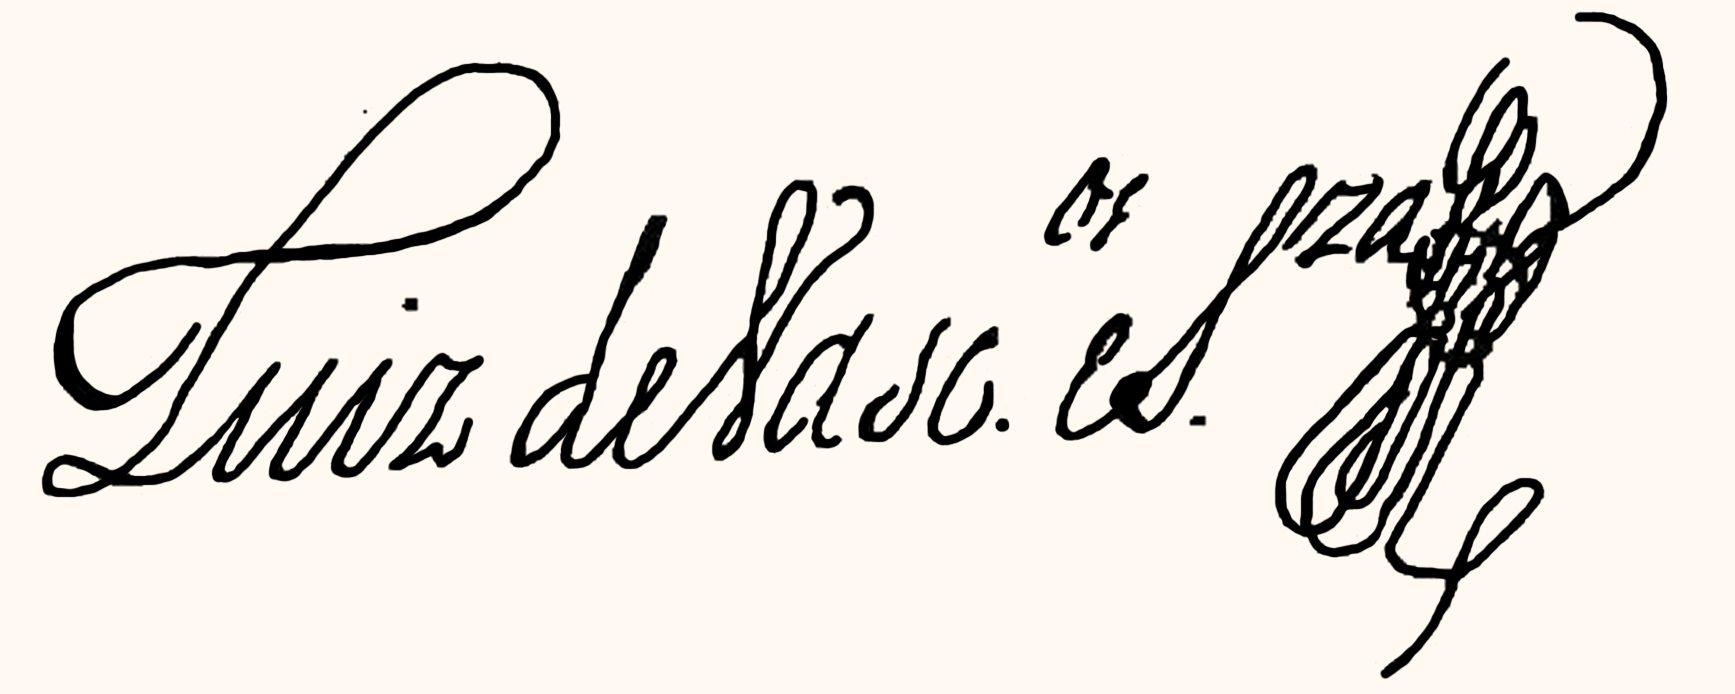 Luiz de Vasc.os e S.za